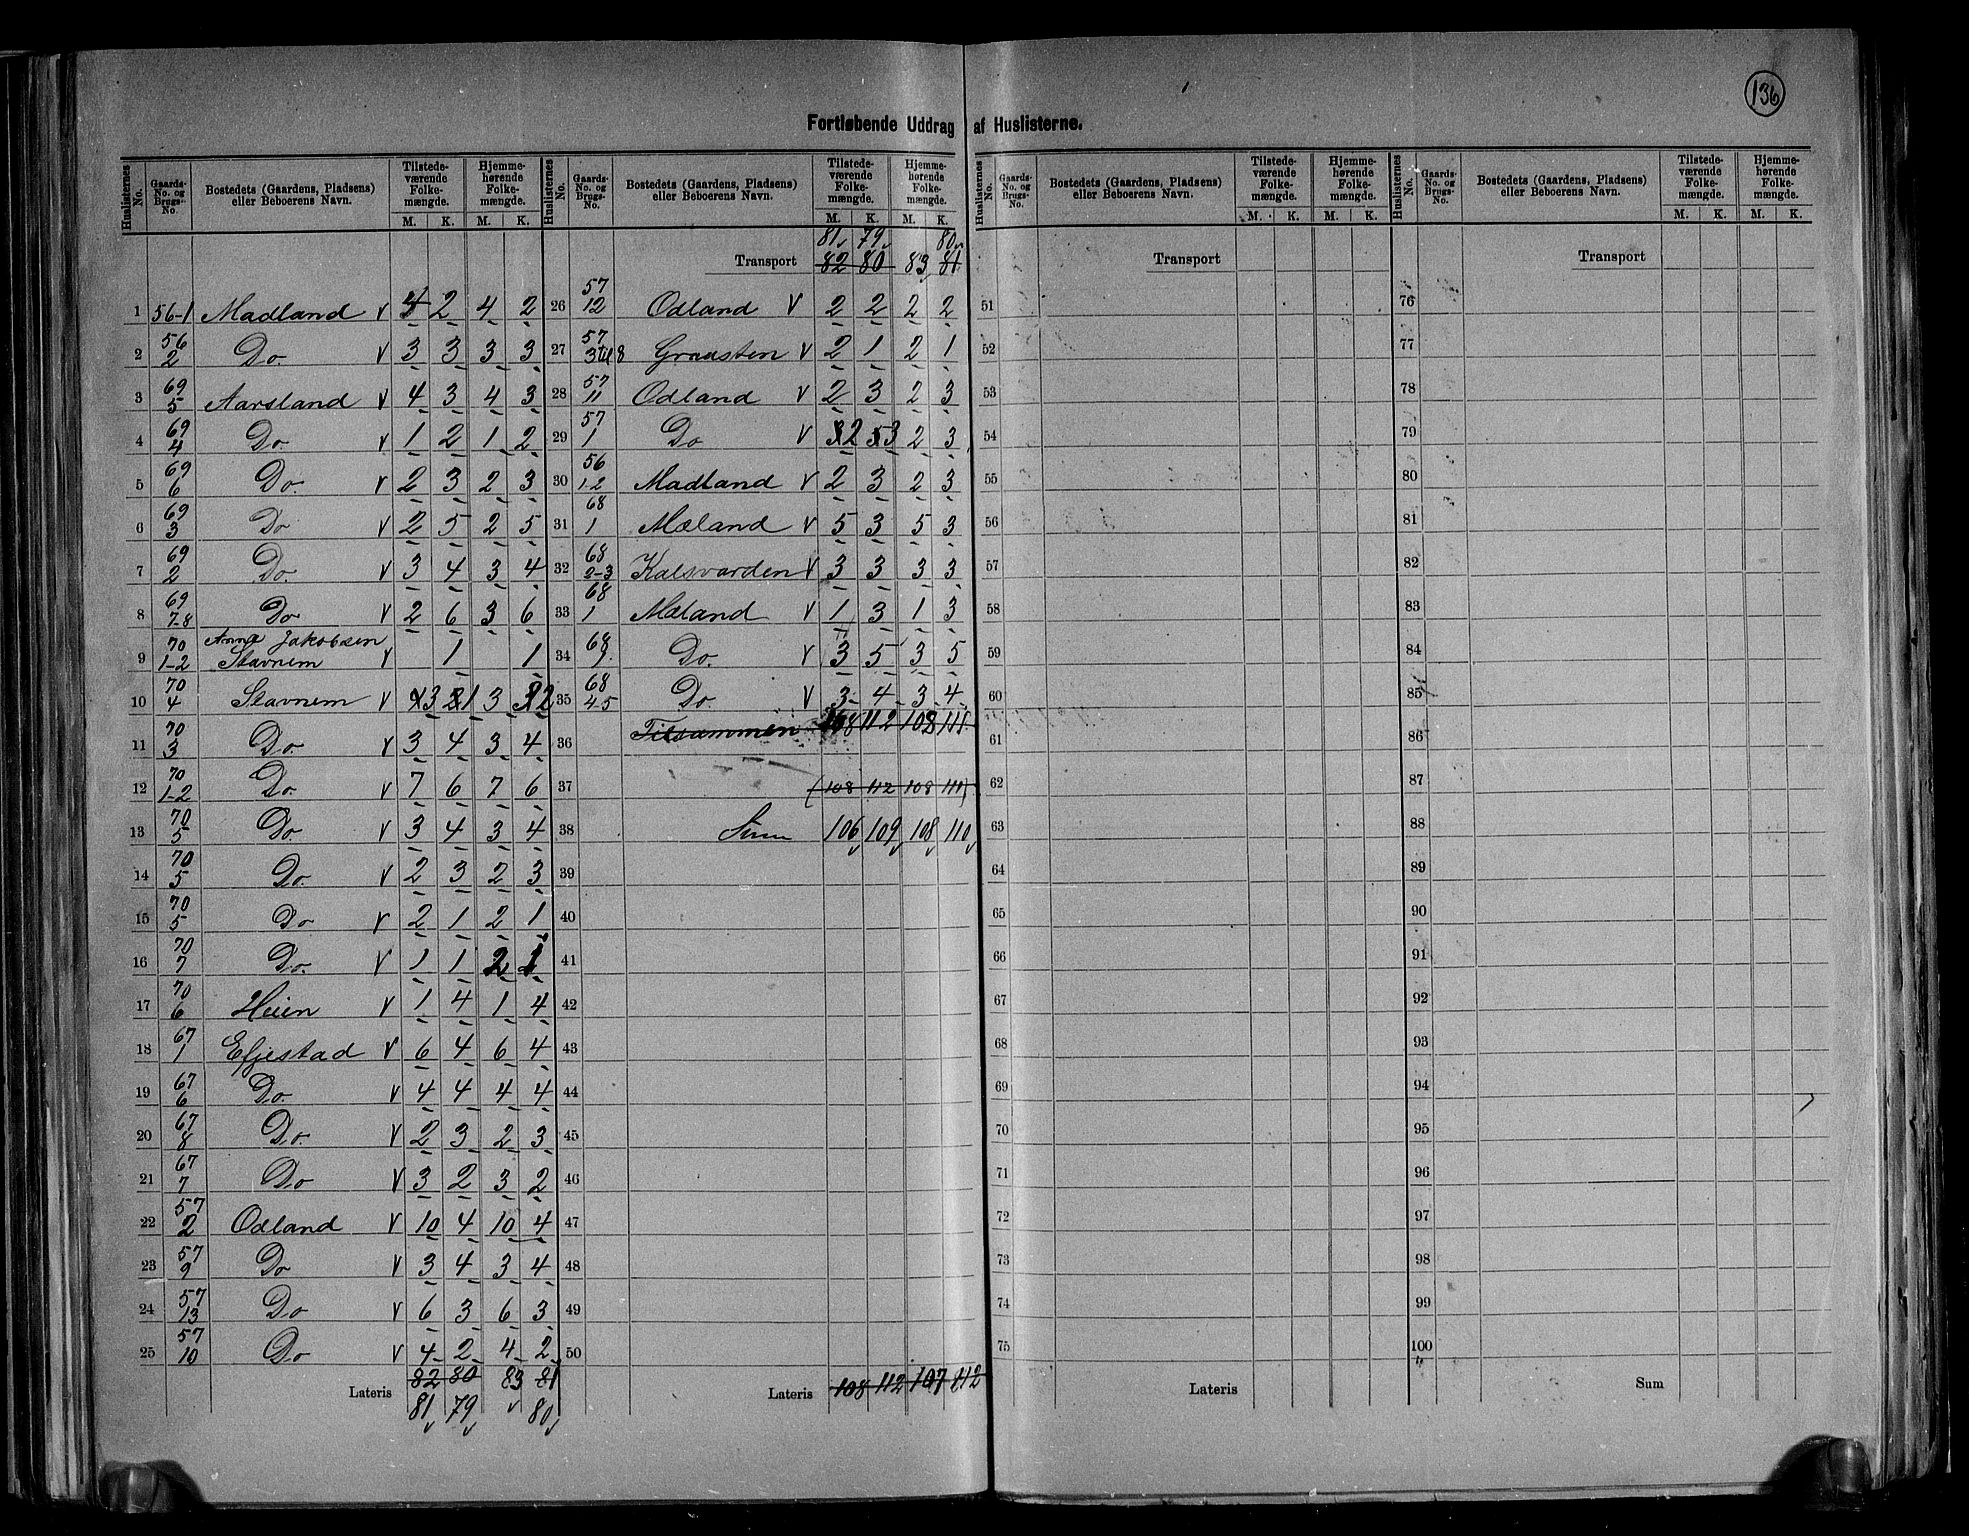 136
Fortløbende Uddrag af Huslisterne.
Huslisternes No. Gaards-No. og Brugs-No. Bostedets (Gaardens, Pladsens) eller Beboerens Navn. Tilstede-værende Folke-mængde. M. K. Hjemme-hørende Folke-mængde. M. K.
1 56-1 Madland V 4 2 4 2
2 56 2 Do. V 3 3 3 3
3 69 5 Aarsland V 4 3 4 3
4 69 4 Do V 1 2 1 2
5 69 6 Do. V 2 3 2 3
6 69 3 Do V 2 5 2 5
7 69 2 Do. V 3 4 3 4
8 69 7-8 Do V 2 6 3 6
9 70 1-2 Anna Jakobsen Stavnem V 1 1
10 70 4 Stavnem V 3 1 3 2
11 70 3 Do V 3 4 3 4
12 70 1-2 Do. V 7 6 7 6
13 70 5 Do. V 3 4 3 4
14 70 5 Do. V 2 3 2 3
15 70 5 Do V 2 1 2 1
16 70 7 Do. V 1 1 2 1
17 70 6 Heien V 1 4 1 4
18 67 1 Efjestad V 6 4 6 4
19 67 6 Do. V 4 4 4 4
20 67 8 Do. V 2 3 2 3
21 67 7 Do V 3 2 3 2
22 57 2 Odland V 10 4 10 4
23 57 9 Do V 3 4 3 4
24 57 13 Do V 6 3 6 3
25 57 10 Do V 4 2 4 2
Lateris 82 80 83 81
81 79 80
Huslisternes No. Gaards-No. og Brugs-No. Bostedets (Gaardens, Pladsens) eller Beboerens Navn. Tilstede-værende Folke-mængde. M. K. Hjemme-hørende Folke-mængde. M. K.
81 79 80
Transport 82 80 83 81
26 57 12 Odland V 2 2 2 2
27 57 3 til 8 Graasten V 2 1 2 1
28 57 11 Odland V 2 3 2 3
29 57 1 Do V 2 3 2 3
30 56 1-2 Madland V 2 3 2 3
31 68 1 Mæland V 5 3 5 3
32 68 2-3 Kalsvarden V 3 3 3 3
33 68 1 Mæland V 1 3 1 3
34 68 1 Do. V 3 5 3 5
35 68 4-5 Do. V 3 4 3 4
36 Tilsammen 108 112 108 111
37 (108 112 108 111)
38 Sum 106 109 108 110
39
40
41
42
43
44
45
46
47
48
49
50
Lateris 108 112 107 112
Huslisternes No. Gaards-No. og Brugs-No. Bostedets (Gaardens, Pladsens) eller Beboerens Navn. Tilstede-værende Folke-mængde. M. K. Hjemme-hørende Folke-mængde. M. K.
Transport
51
52
53
54
55
56
57
58
59
60
61
62
63
64
65
66
67
68
69
70
71
72
73
74
75
Lateris
Huslisternes No. Gaards-No. og Brugs-No. Bostedets (Gaardens, Pladsens) eller Beboerens Navn. Tilstede-værende Folke-mængde. M. K. Hjemme-hørende Folke-mængde. M. K.
Transport
76
77
78
79
80
81
82
83
84
85
86
87
88
89
90
91
92
93
94
95
96
97
98
99
100
Sum